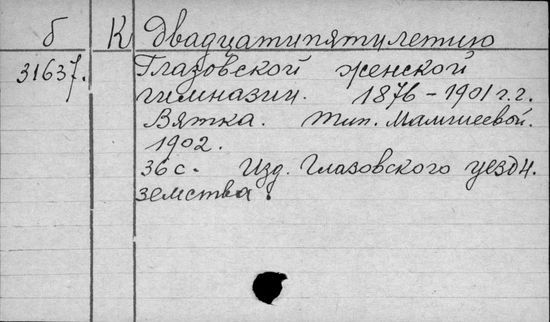 б К Двадцатипятилетию
31637. Глазовской женской
гимназии. 1876-1901 г.г.
Вятка. Тип. Мамшеевой.
1902.
36 с. Изд. Глазовского уездн.
земства.